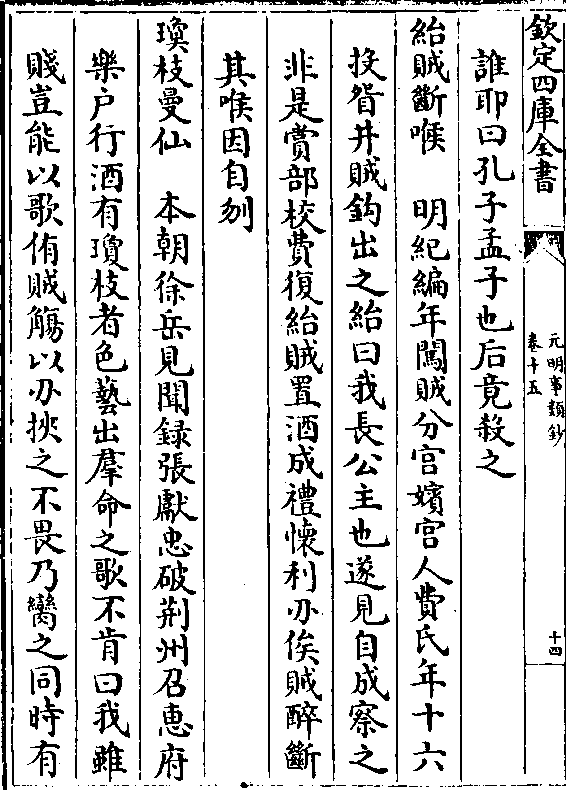 欽定四庫全書
元明事類鈔
卷十五
十四
誰耶曰孔子孟子也后竟殺之
紿賊斷喉　明紀編年闖賊分宮嬪宮人費氏年十六
投眢井賊鈎出之紿曰我長公主也遂見自成察之
非是賞部校費復紿賊置酒成禮懷利刅俟賊醉斷
其喉因自刎
瓊枝曼仙　本朝徐岳見聞録張獻忠破荆州召惠府
樂户行酒有瓊枝者色藝出羣命之歌不肯曰我雖
賤豈能以歌侑賊觴以刅挾之不畏乃臠之同時有